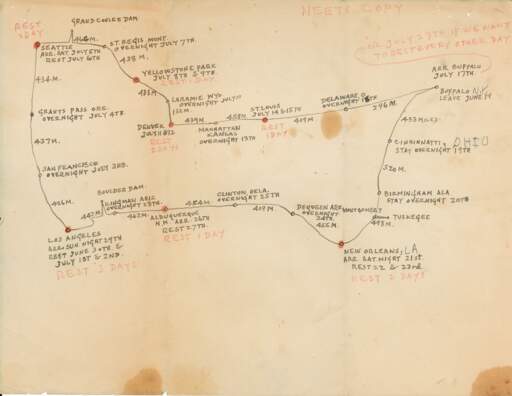 NEETS COPY
REST
1 DAY
GRAND COULEE DAM
SEATTLE
ARR. SAT. JULY 5TH
REST JULY 6TH
ST REGIS. MONT.
OVERNIGHT JULY 7TH.
438 M.
YELLOWSTONE PARK
JULY 8TH & 9TH.
REST 1 DAY
OR JULY 23RD IF WE WANT
TO REST EVERY OTHER DAY
ARR BUFFALO
JULY 17TH.
BUFFALO N.Y.
LEAVE JUNE 19
434 M.
LARAMIE WYO
OVERNIGHT JULY 10
GRANTS PASS ORE.
OVERNIGHT JULY 4TH.
DENVER
REST
2 DAYS
439 M.
MANHATTAN
KANSAS
OVERNIGHT 13TH
ST. LOUIS
JULY 14 & 15TH
REST
1 DAY
419 M.
DELAWARE O.
OVERNIGHT 16TH
296 M.
433 MILES
CINCINNATTI, OHIO
STAY OVERNIGHT 19TH
437 M.
SAN FRANCISCO
OVERNIGHT JULY 3RD.
520 M.
BOULDER DAM.
KINGMAN ARIZ
OVERNIGHT 28TH.
462 M.
ALBUQUERQUE
N.M. ARR. 26TH
REST 27TH.
REST 1 DAY
454 M.
CLINTON OKLA.
OVERNIGHT 25TH
419 M.
DEQUEEN ARK.
OVERNIGHT
24TH.
455 M.
BIRMINGHAM ALA
STAY OVERNIGHT 20TH
MONTGOMERY
TUSKEGEE
LOS ANGELES
ARR. SUN NIGHT 29TH
REST JUNE 30TH &
JULY 1ST & 2ND.
REST 3 DAYS
NEW ORLEANS, LA
ARR SAT. NIGHT 21ST.
REST 22 & 23RD.
REST 2 DAYS